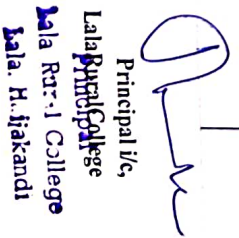 Principal i/c,
Lala Rural College
Principal
Lala Rural College
Lala. H.